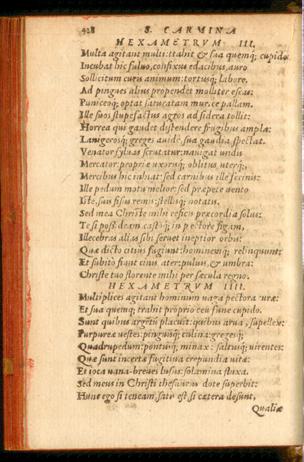 428 S. CARMINA
HEXAMETRVM III.
Multa agitant multi: trahit & sua quemq; cupido
Incubat hic fuluo, cōfixus edacibus, auro
Sollicitum curis animum: tortusq; labore.
Ad pingues alius propendet molliter escas:
Puniceoq; optat saturatam murice pallam.
Ille suos stupefactus agros ad sidera tollit:
Horrea qui gaudet distendere frugibus ampla:
Lanigerosq; greges auidè sua gaudia spectat.
Venator syluas scrutatur: nauigat undis
Mercator, propriæ uxorisq; oblitus, uterq;
Mercibus hic inhiat: sed carnibus ille ferinis:
Ille pedum motu melior: sed præpete uento
Iste, suis fisus remis: stellisq; notatis.
Sed mea Christe mihi reficis præcordia solus:
Te si post deam castiq; in pectore figam,
Illecebras alias sibi seruet ineptior orbis:
Quæ dicto citius fugiunt: hominemq; relinquunt:
Et subitò fiunt cinis, ater: puluis, & umbra:
Christe tuo florente mihi per sæcula regno.
HEXAMETRVM IIII.
Multiplices agitant hominum uaga pectora curæ:
Et sua quemq; trahit proprio ceu fune cupido.
Sunt quibus argētū placuit: quibus arua, supellex:
Purpureæ uestes: pinguisq; culina: gregesq;
Quadrupedum: pontusq; minax: saltusq; uirentes:
Quæ sunt incertæ fugitiua crepundia uitæ:
Et iota uana: breues lusus: solamina fluxa.
Sed meus in Christi thesaurus dote superbit:
Hunc ego si teneam, satis est, si cætera desunt,
Qualiæ